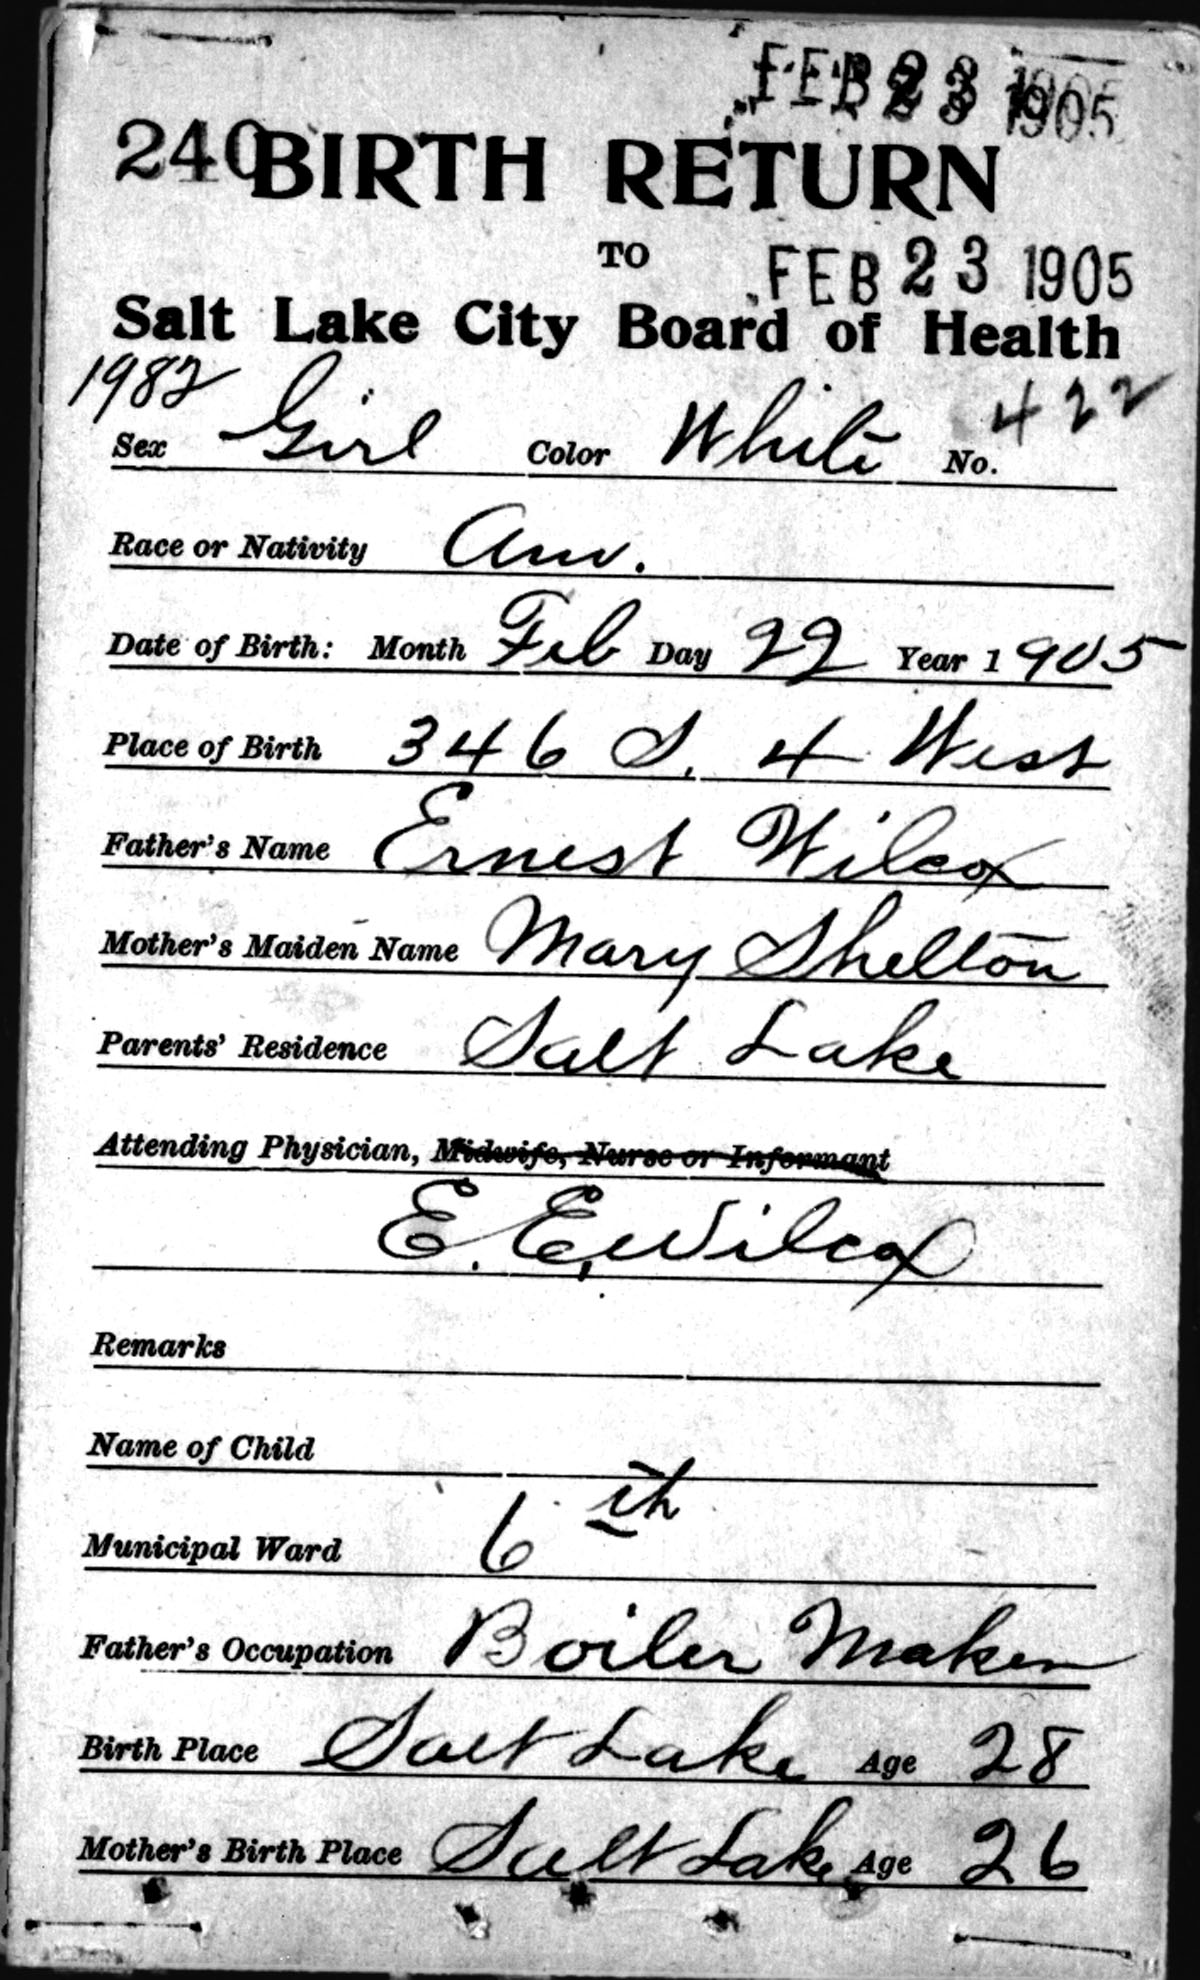 FEB 23 1905
240 BIRTH RETURN
TO
FEB 23 1905
Salt Lake City Board of Health
1982
422
Sex Girl Color White No.
Race or Nativity Am.
Date of Birth: Month Feb Day 22 Year 1905
Place of Birth 346 S. 4 West
Father's Name Ernest Wilcox
Mother's Maiden Name Mary Shelton
Parents' Residence Salt Lake
Attending Physician, Midwife, Nurse or Informant
E. E. Wilcox
Remarks
Name of Child
Municipal Ward 6th
Father's Occupation Boiler Maker
Birth Place Salt Lake Age 28
Mother's Birth Place Salt Lake Age 26